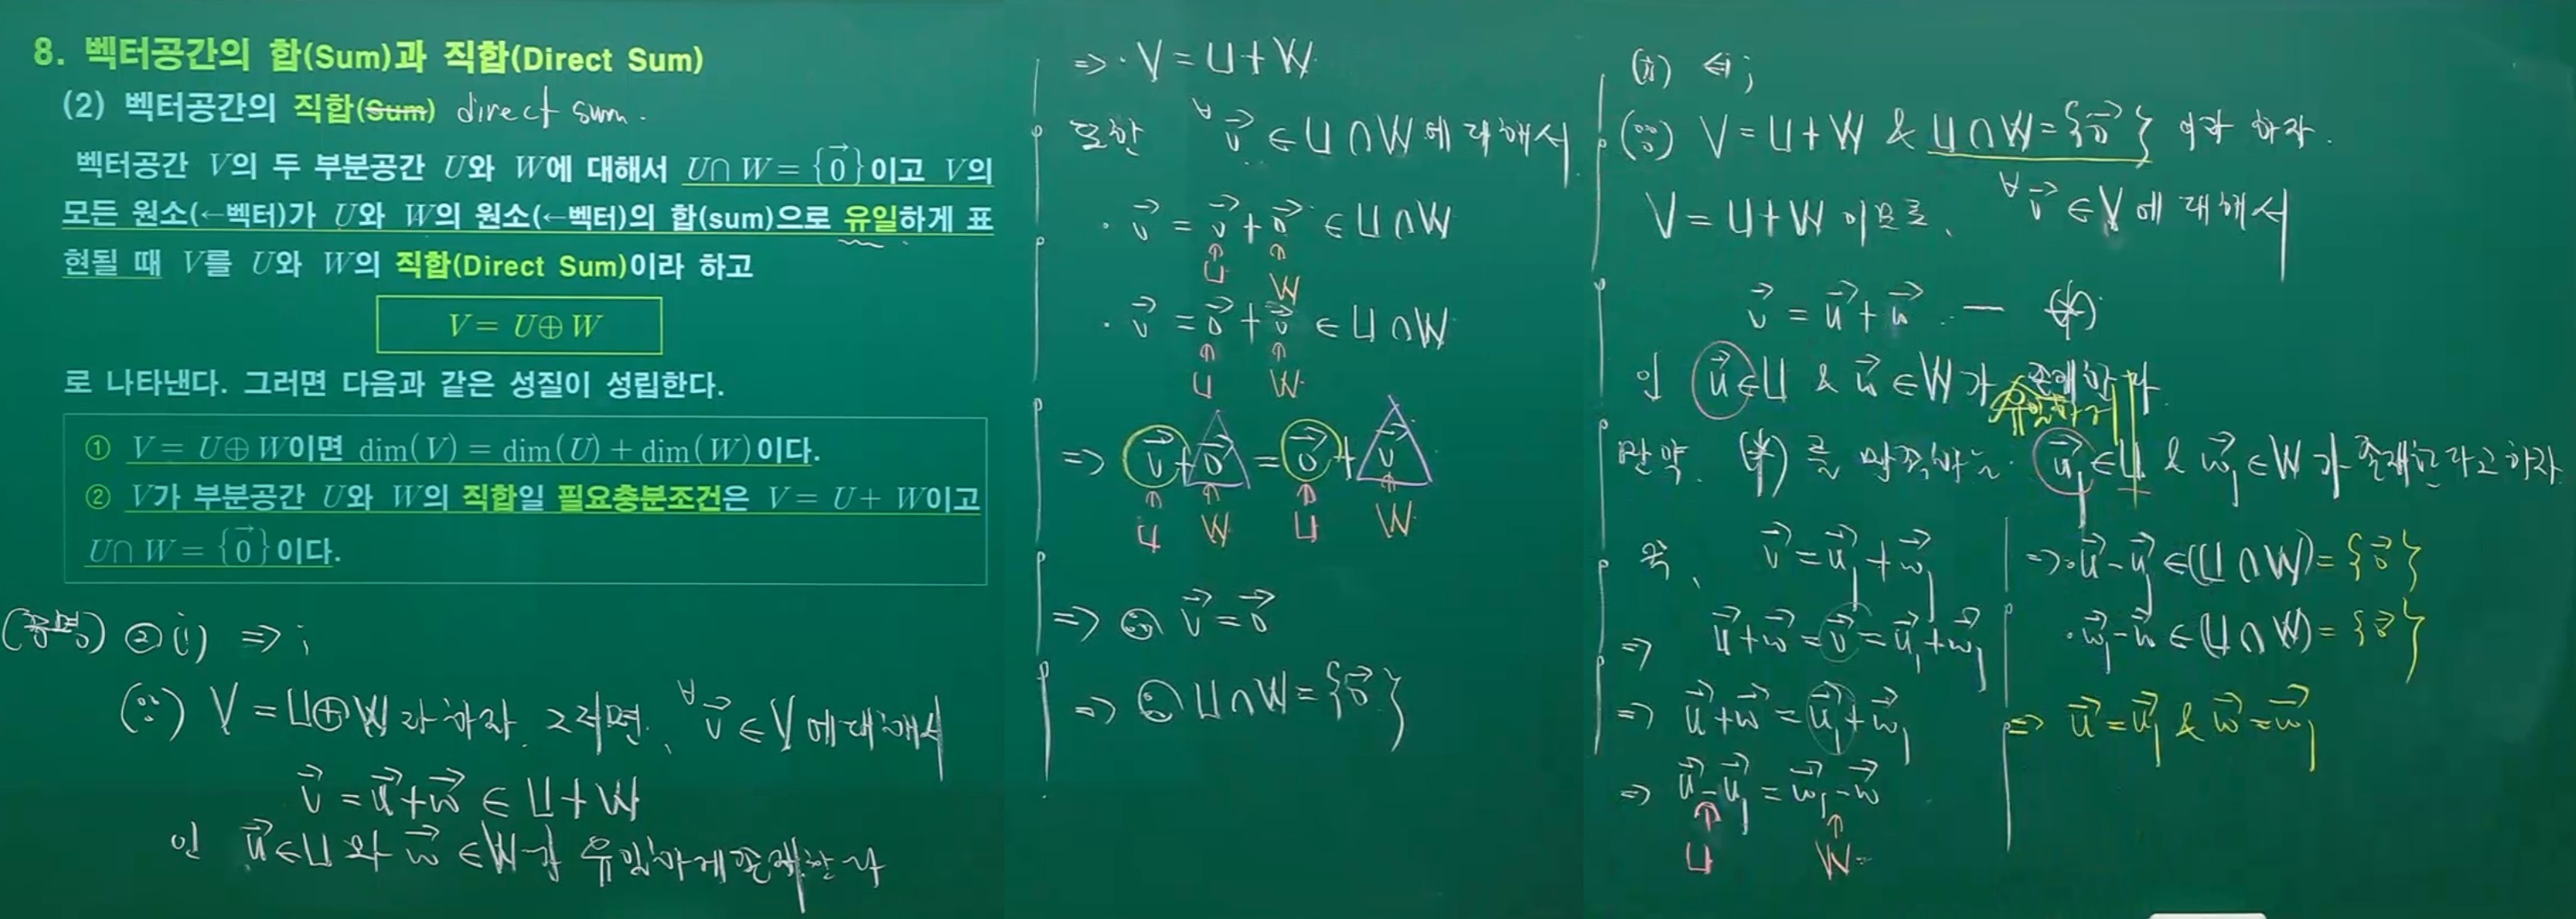 8. 벡터공간의 합(Sum)과 직합(Direct Sum)
(2) 벡터공간의 직합(Sum) direct sum.
벡터공간 V의 두 부분공간 U와 W에 대해서 U∩W = {0⃗}이고 V의
모든 원소(←벡터)가 U와 W의 원소(←벡터)의 합(sum)으로 유일하게 표
현될 때 V를 U와 W의 직합(Direct Sum)이라 하고
V = U⊕W
로 나타낸다. 그러면 다음과 같은 성질이 성립한다.
① V = U⊕W이면 dim(V) = dim(U) + dim(W)이다.
② V가 부분공간 U와 W의 직합일 필요충분조건은 V = U + W이고
U∩W = {0⃗}이다.
(증명) ② (i) => ;
(∵) V = U⊕W라 하자. 그러면, ∀v⃗ ∈ V에 대해서
v⃗ = u⃗ + w⃗ ∈ U + W
인 u⃗ ∈ U 와 w⃗ ∈ W가 유일하게 존재한다
=> · V = U + W
또한 ∀v⃗ ∈ U∩W에 대해서
· v⃗ = v⃗ + 0⃗ ∈ U∩W
↑ ↑
U W
· v⃗ = 0⃗ + v⃗ ∈ U∩W
↑ ↑
U W
=> v⃗ + 0⃗ = 0⃗ + v⃗
↑ ↑ ↑ ↑
U W U W
=> ∴ v⃗ = 0⃗
=> ∴ U∩W = {0⃗}
(ii) <= ;
(∵) V = U + W & U∩W = {0⃗} 이라 하자.
V = U + W 이므로, ∀v⃗ ∈ V에 대해서
v⃗ = u⃗ + w⃗ — (*)
인 u⃗ ∈ U & w⃗ ∈ W가 존재한다.
유일하게
만약 (*)를 만족하는 u⃗₁ ∈ U & w⃗₁ ∈ W가 존재한다고 하자
즉, v⃗ = u⃗₁ + w⃗₁
=> u⃗ + w⃗ = v⃗ = u⃗₁ + w⃗₁
=> u⃗ + w⃗ = u⃗₁ + w⃗₁
=> u⃗ - u⃗₁ = w⃗₁ - w⃗
↑ ↑
U W
=> · u⃗ - u⃗₁ ∈ (U∩W) = {0⃗}
· w⃗₁ - w⃗ ∈ (U∩W) = {0⃗}
=> u⃗ = u⃗₁ & w⃗ = w⃗₁